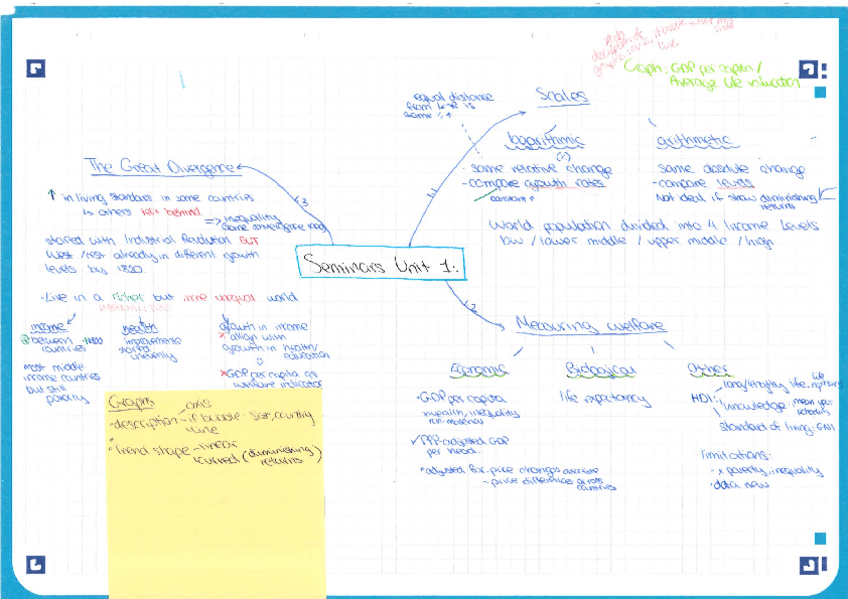 Graph: GDP per capita /
Average life valuation
Scales
equal distance
from
is
same
logarithmic
same relative change
- compare growth rates
constant
arithmetic
same absolute change
- compare levels
Not ideal if show diminishing
returns
World population divided into 4 Income Levels
low / lower middle / upper middle / high
The Great Divergence
↑ in living standars in some countries
↳ others left behind
=> inequality
started with Industrial Revolution BUT
West / rest already in different growth
levels by 1820.
- Live in a richer but more unequal world
INEQUALITIES
income
between
countries
most middle
income countries
but still
poverty
health
improvements
started
unevenly
growth in income
x align with
growth in health/
education
x GDP per capita as
welfare indicator
Seminars Unit 1:
1
2
3
Measuring welfare
Economic
• GDP per capita
x wealth, inequality
non-material
✓ PPP-adjusted GDP
per head.
• adjusted for price changes overtime
- price differences across
countries
Biological
life expectancy
Other
HDI:
long/healthy life:
life expectancy
knowledge:
mean years
schooling
standard of living: GNI
limitations:
- x poverty, inequality
• data new
Graphs
axis
• description - if bubble: size, country
line
• Trend shape - linear
curved (diminishing
returns)